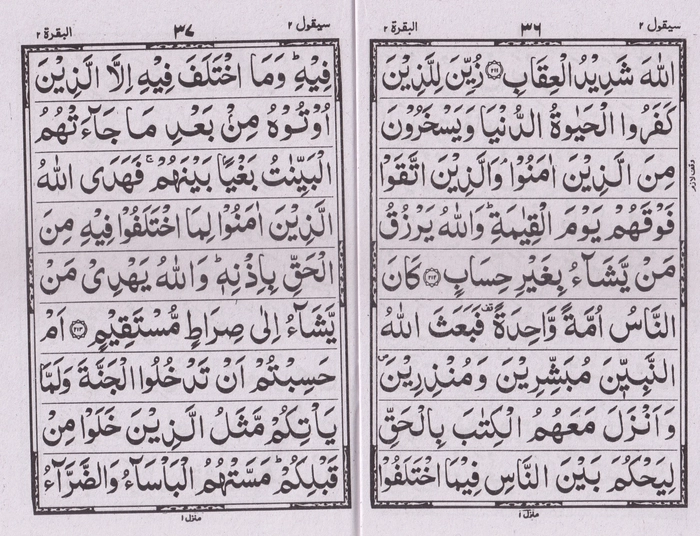 سيقول ٢
٣٦
البقرة ٢
اللهَ شَدِيْدُ الْعِقَابِ ﴿٢١١﴾ زُيِّنَ لِلَّذِيْنَ
كَفَرُوا الْحَيٰوةُ الدُّنْيَا وَيَسْخَرُوْنَ
مِنَ الَّذِيْنَ اٰمَنُوْا ۘ وَالَّذِيْنَ اتَّقَوْا
وقف لازم
فَوْقَهُمْ يَوْمَ الْقِيٰمَةِ ؕ وَاللهُ يَرْزُقُ
مَنْ يَّشَآءُ بِغَيْرِ حِسَابٍ ﴿٢١٢﴾ كَانَ
النَّاسُ اُمَّةً وَّاحِدَةً ۫ فَبَعَثَ اللهُ
النَّبِيّٖنَ مُبَشِّرِيْنَ وَمُنْذِرِيْنَ ۪
وَاَنْزَلَ مَعَهُمُ الْكِتٰبَ بِالْحَقِّ
لِيَحْكُمَ بَيْنَ النَّاسِ فِيْمَا اخْتَلَفُوْا
منزل ١
سيقول ٢
٣٧
البقرة ٢
فِيْهِ ؕ وَمَا اخْتَلَفَ فِيْهِ اِلَّا الَّذِيْنَ
اُوْتُوْهُ مِنْۢ بَعْدِ مَا جَآءَتْهُمُ
الْبَيِّنٰتُ بَغْيًۢا بَيْنَهُمْ ۚ فَهَدَى اللهُ
الَّذِيْنَ اٰمَنُوْا لِمَا اخْتَلَفُوْا فِيْهِ مِنَ
الْحَقِّ بِاِذْنِهٖ ؕ وَاللهُ يَهْدِيْ مَنْ
يَّشَآءُ اِلٰى صِرَاطٍ مُّسْتَقِيْمٍ ﴿٢١٣﴾ اَمْ
حَسِبْتُمْ اَنْ تَدْخُلُوا الْجَنَّةَ وَلَمَّا
يَاْتِكُمْ مَّثَلُ الَّذِيْنَ خَلَوْا مِنْ
قَبْلِكُمْ ؕ مَسَّتْهُمُ الْبَاْسَآءُ وَالضَّرَّآءُ
منزل ١